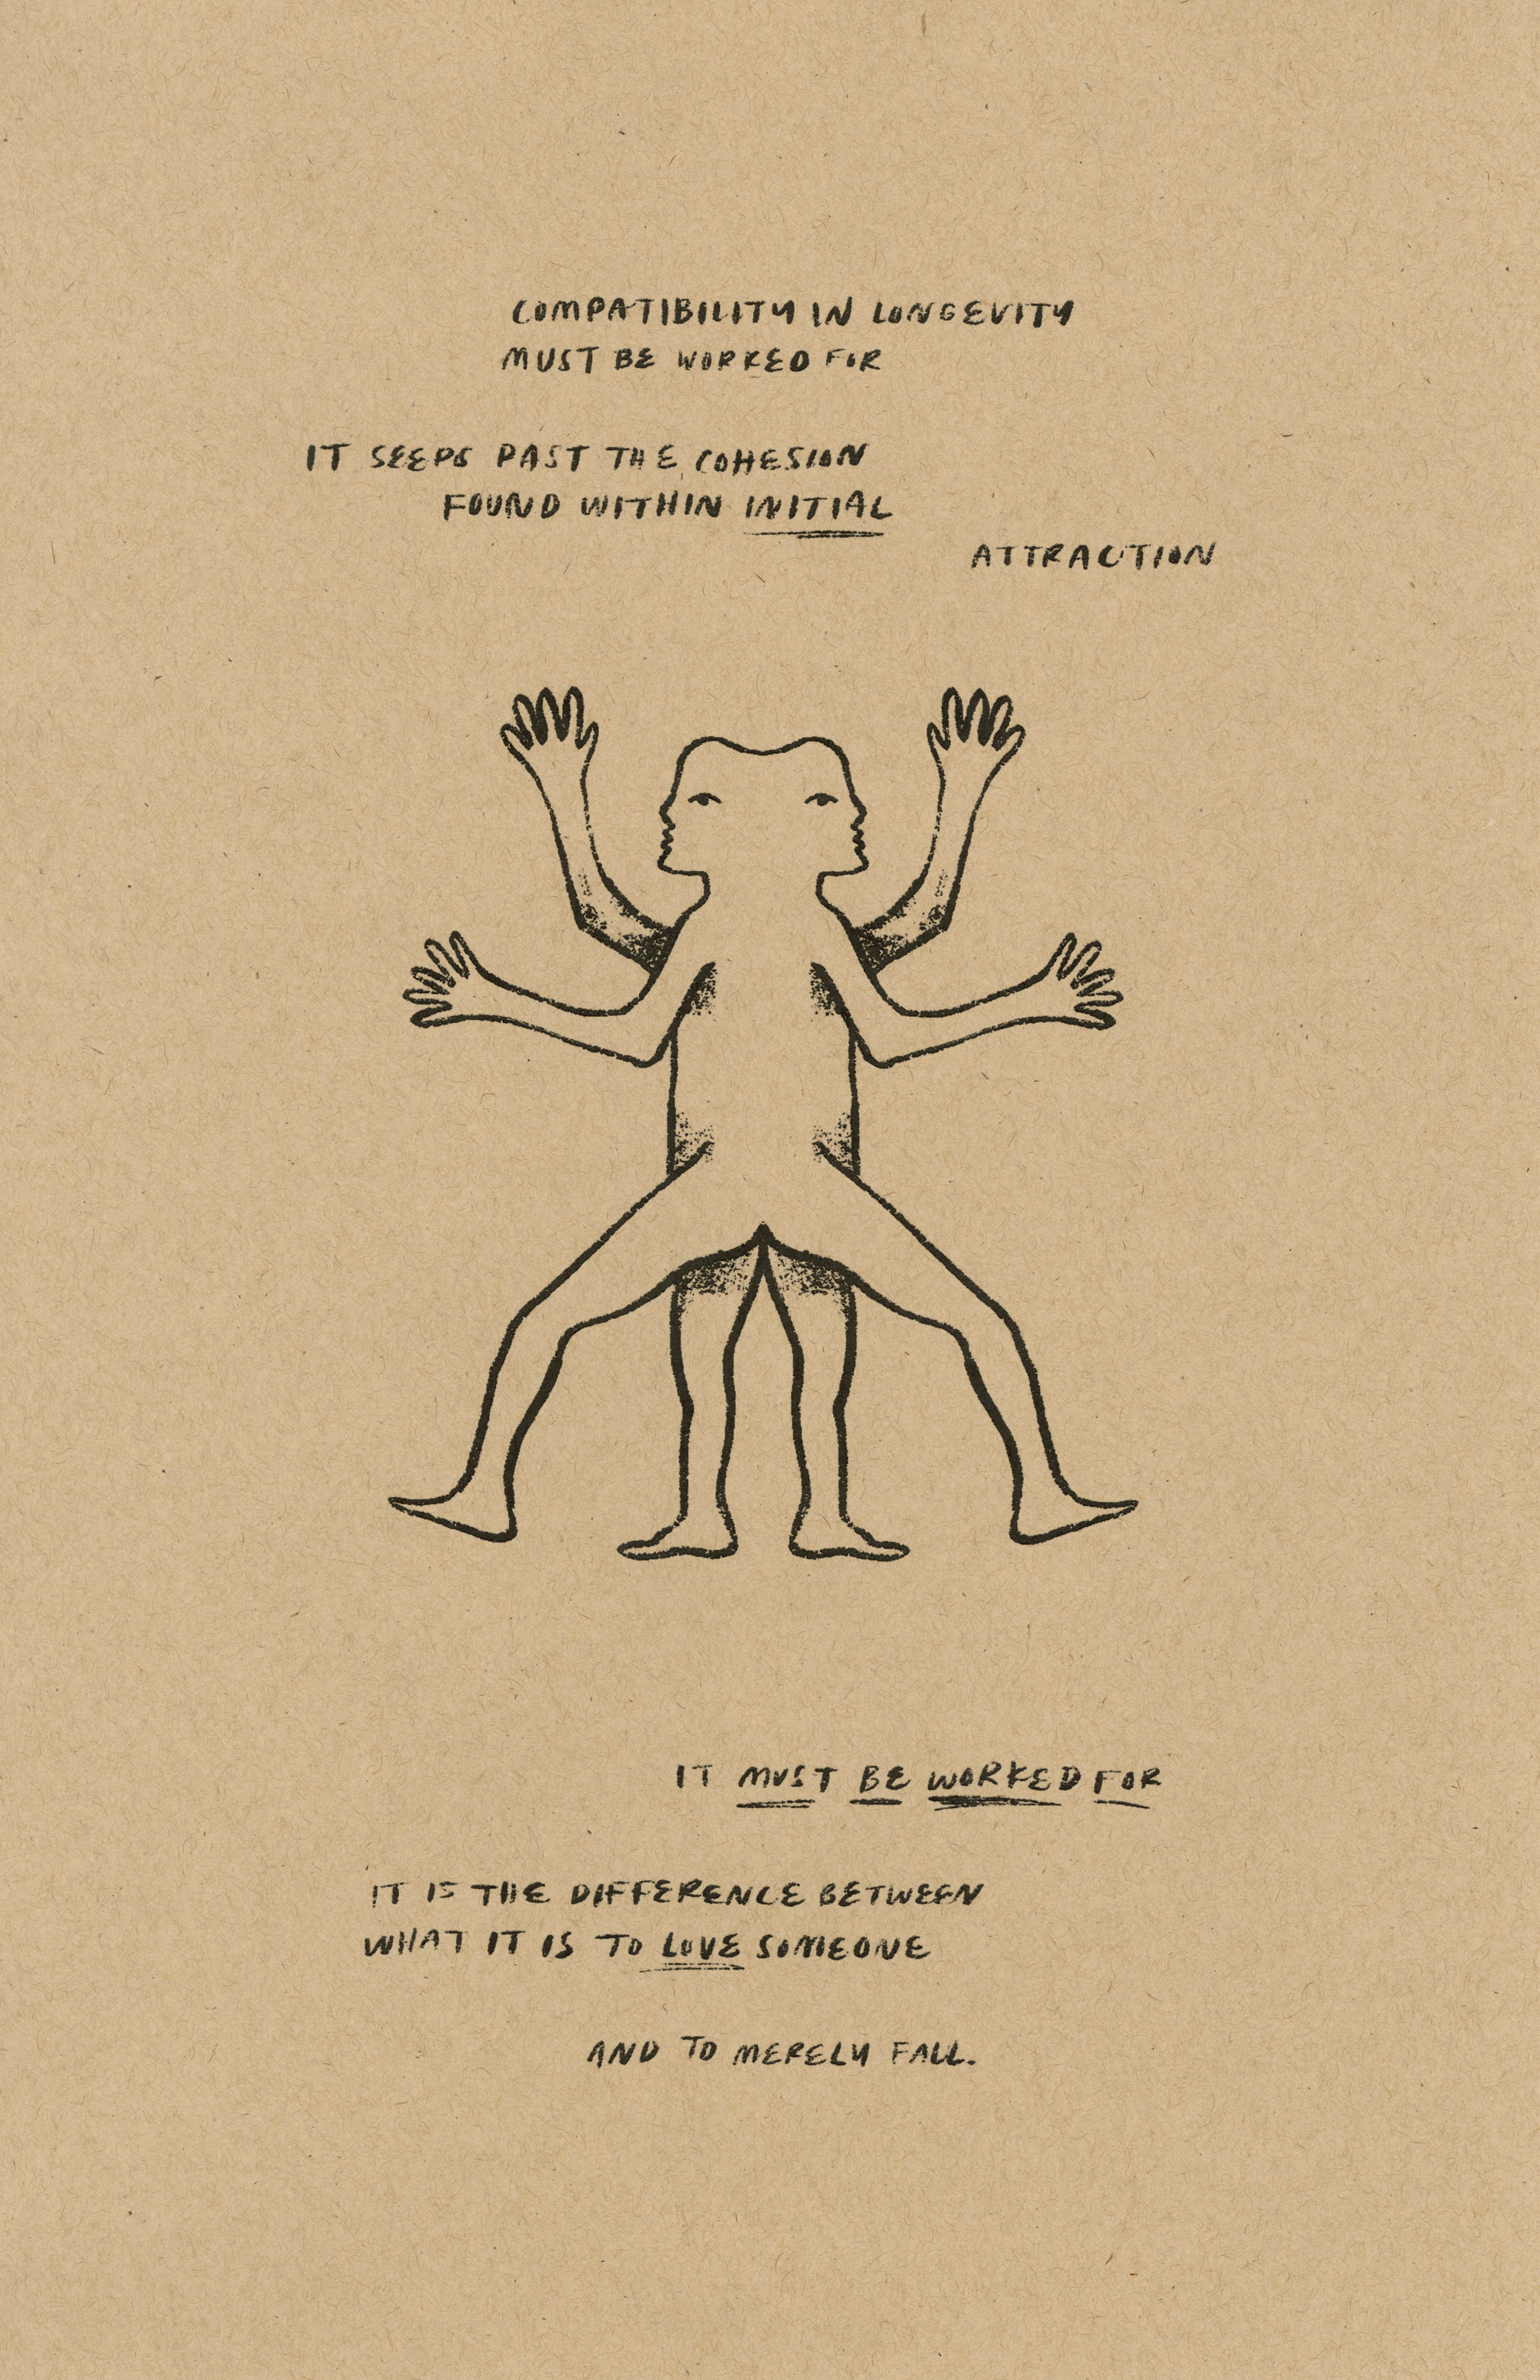 COMPATIBILITY IN LONGEVITY
MUST BE WORKED FOR
IT SEEPS PAST THE COHESION
FOUND WITHIN INITIAL
ATTRACTION
IT MUST BE WORKED FOR
IT IS THE DIFFERENCE BETWEEN
WHAT IT IS TO LOVE SOMEONE
AND TO MERELY FALL.